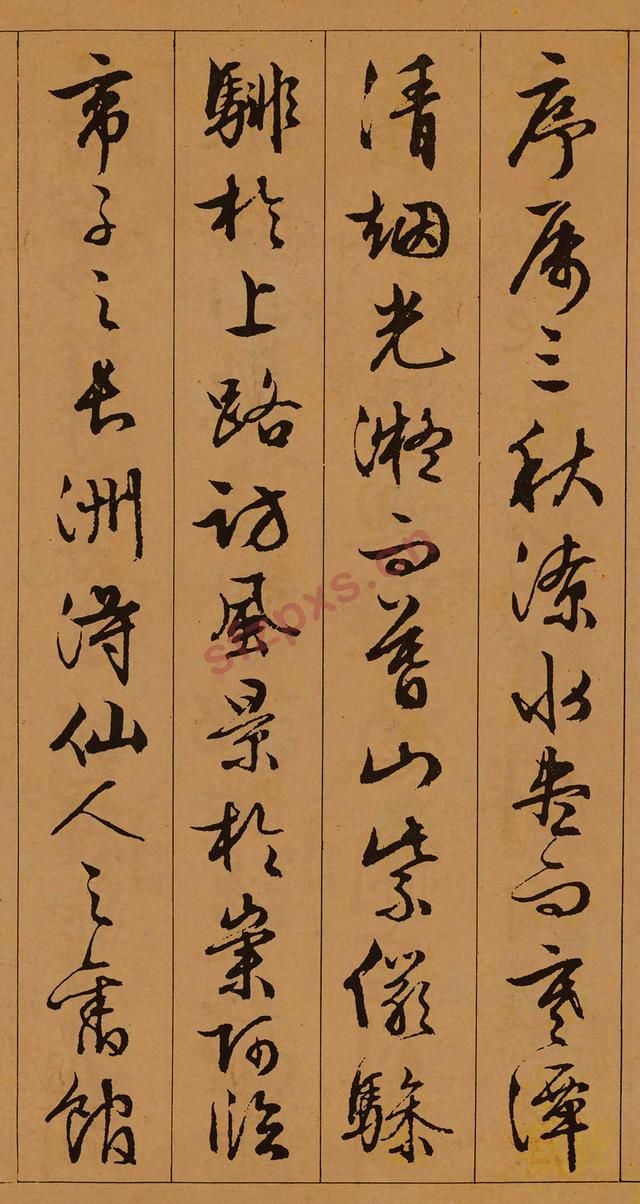 序属三秋潦水尽而寒潭
清烟光凝而暮山紫俨骖
騑於上路访风景於崇阿临
帝子之长洲得仙人之旧馆
shizpxs.cn